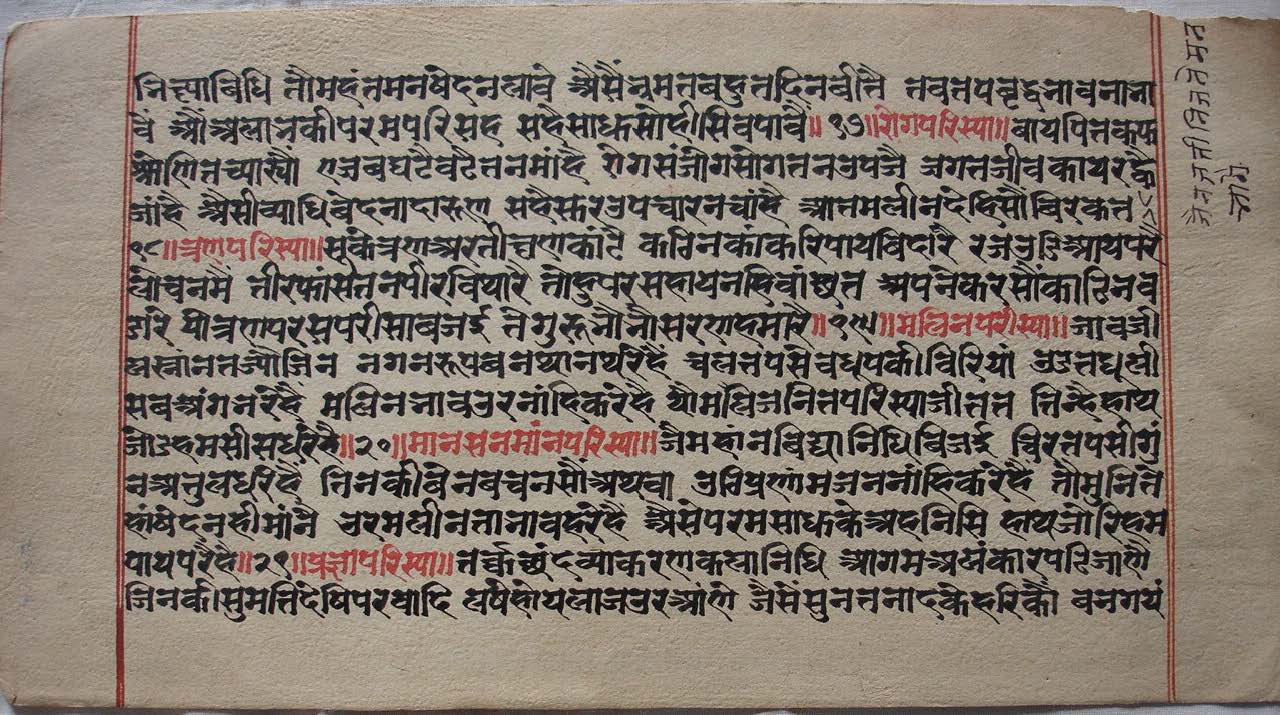 मित्याबिधि तौमहंतमनषेदनल्यावै अैसैंनुमतबहुतदिनबीतै तबतपवृद्धनावनानां
वै औअलानकीपरमपरिसह सहैसाधसोहीसिवपावै॥१७॥रोगपरिस्या॥बायपित्तकफ
श्रोणितच्यास्यौं एजबघटैबटैतनमांहै रोगसंजोगसोगतनउपजै जगतजीवकायरह्वै
जांहै अैसीव्याधिबेदनादारुण सहैसूरउपचारनचांहै आतमलीनदेहसौंबिरकत
१८॥त्रणपरिस्या॥सूकेत्रणअरतीछणकांटै कठिनकांकरिपायविदारै रजउडिआयपरै
लोचनमैं तीरफांसतनपीरविथारै तोहुपरसहायनहिवांछत अपनेकरसौंकाढिनव
डारै यौंत्रणपरसपरीसाबजई तेगुरुनौनौसरणहमारै॥१९॥मलिनपरीस्या॥जावजी
वस्नानतज्यौजिन नगनरूपबनथानधरेहै चलतपसेवधूपकीबिरियां उडतधूली
सबअंगनरेहै मलिननावउरनांहिकरेहै यौमलिजनितपरिस्याजीतत तिन्हैहाथ
जोडहमसीसधरेहै॥२०॥मानसनमांनपरिस्या॥जेमहांनबिद्यानिधिबिजई चिरतपसीगुं
नअतुलधरेहै तिनकीबिनैबचनसौंअथवा उठिप्रणांमजननांहिकरेहै तौमुनितं
हांषेदनहीमांनै उरमलीनतानावहरेहै अैसेपरमसाधकेअहनिसि हाथजोरिहम
पायपरैहै॥२१॥प्रज्ञापरिस्या॥तर्कछंदव्याकरणकलानिधि आगमअलंकारपढिजाणै
जिनकीसुमतिदेषिपरवादि बिलषेहोयलाजउरआंणै जैसेसुनतनादकेहरिकौ बनगयं